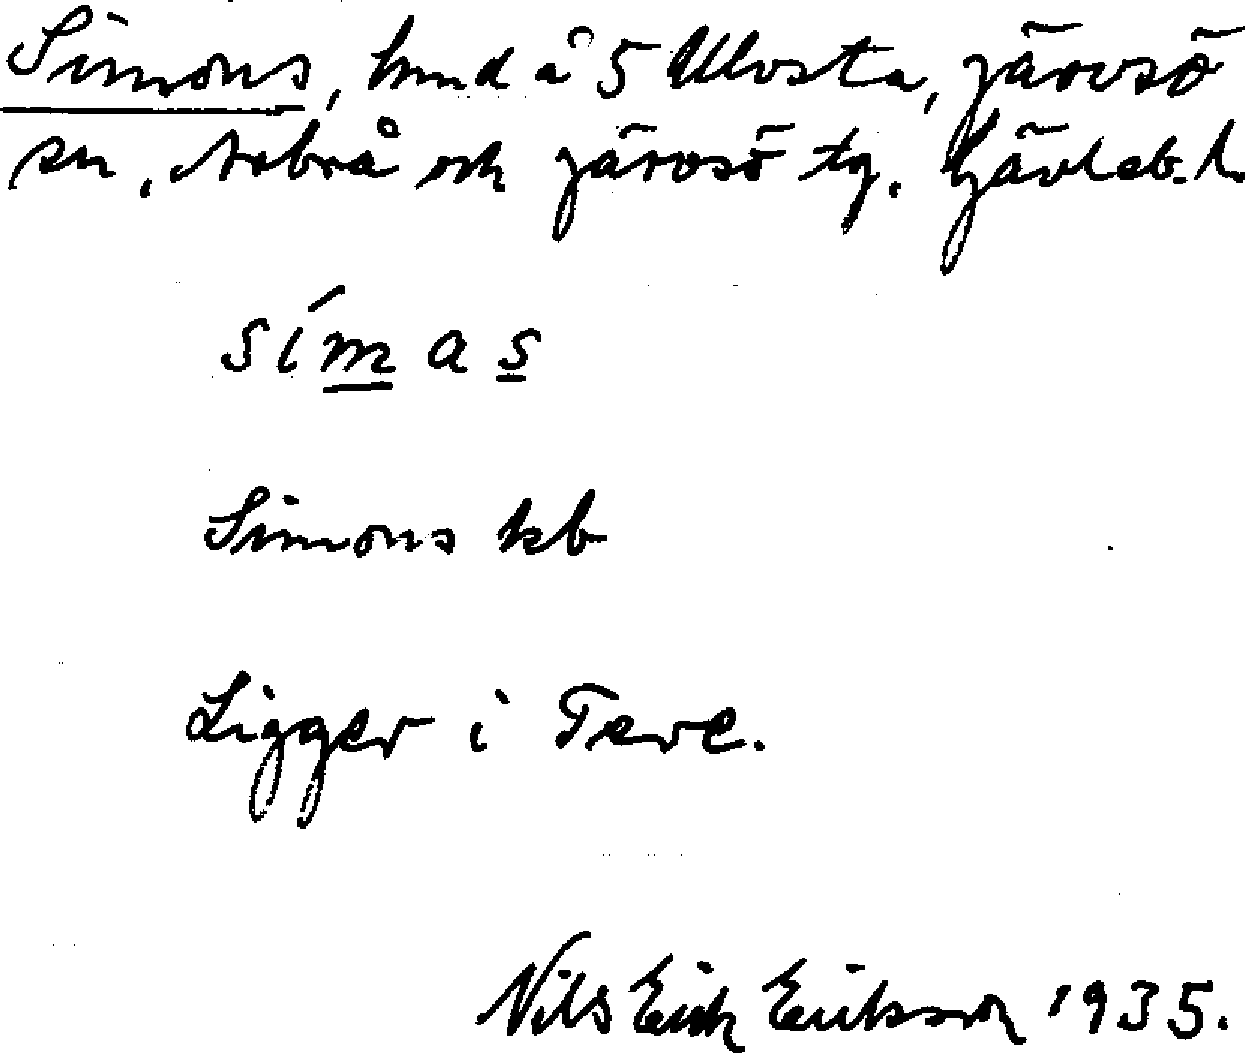 Simons, hmd å 5 Ulvsta, Järvsö
sn, Arbrå och Järvsö tg. Gävleb. l.
símas
Simons kb
Ligger i Teve.
Nils Erik Eriksson 1935.